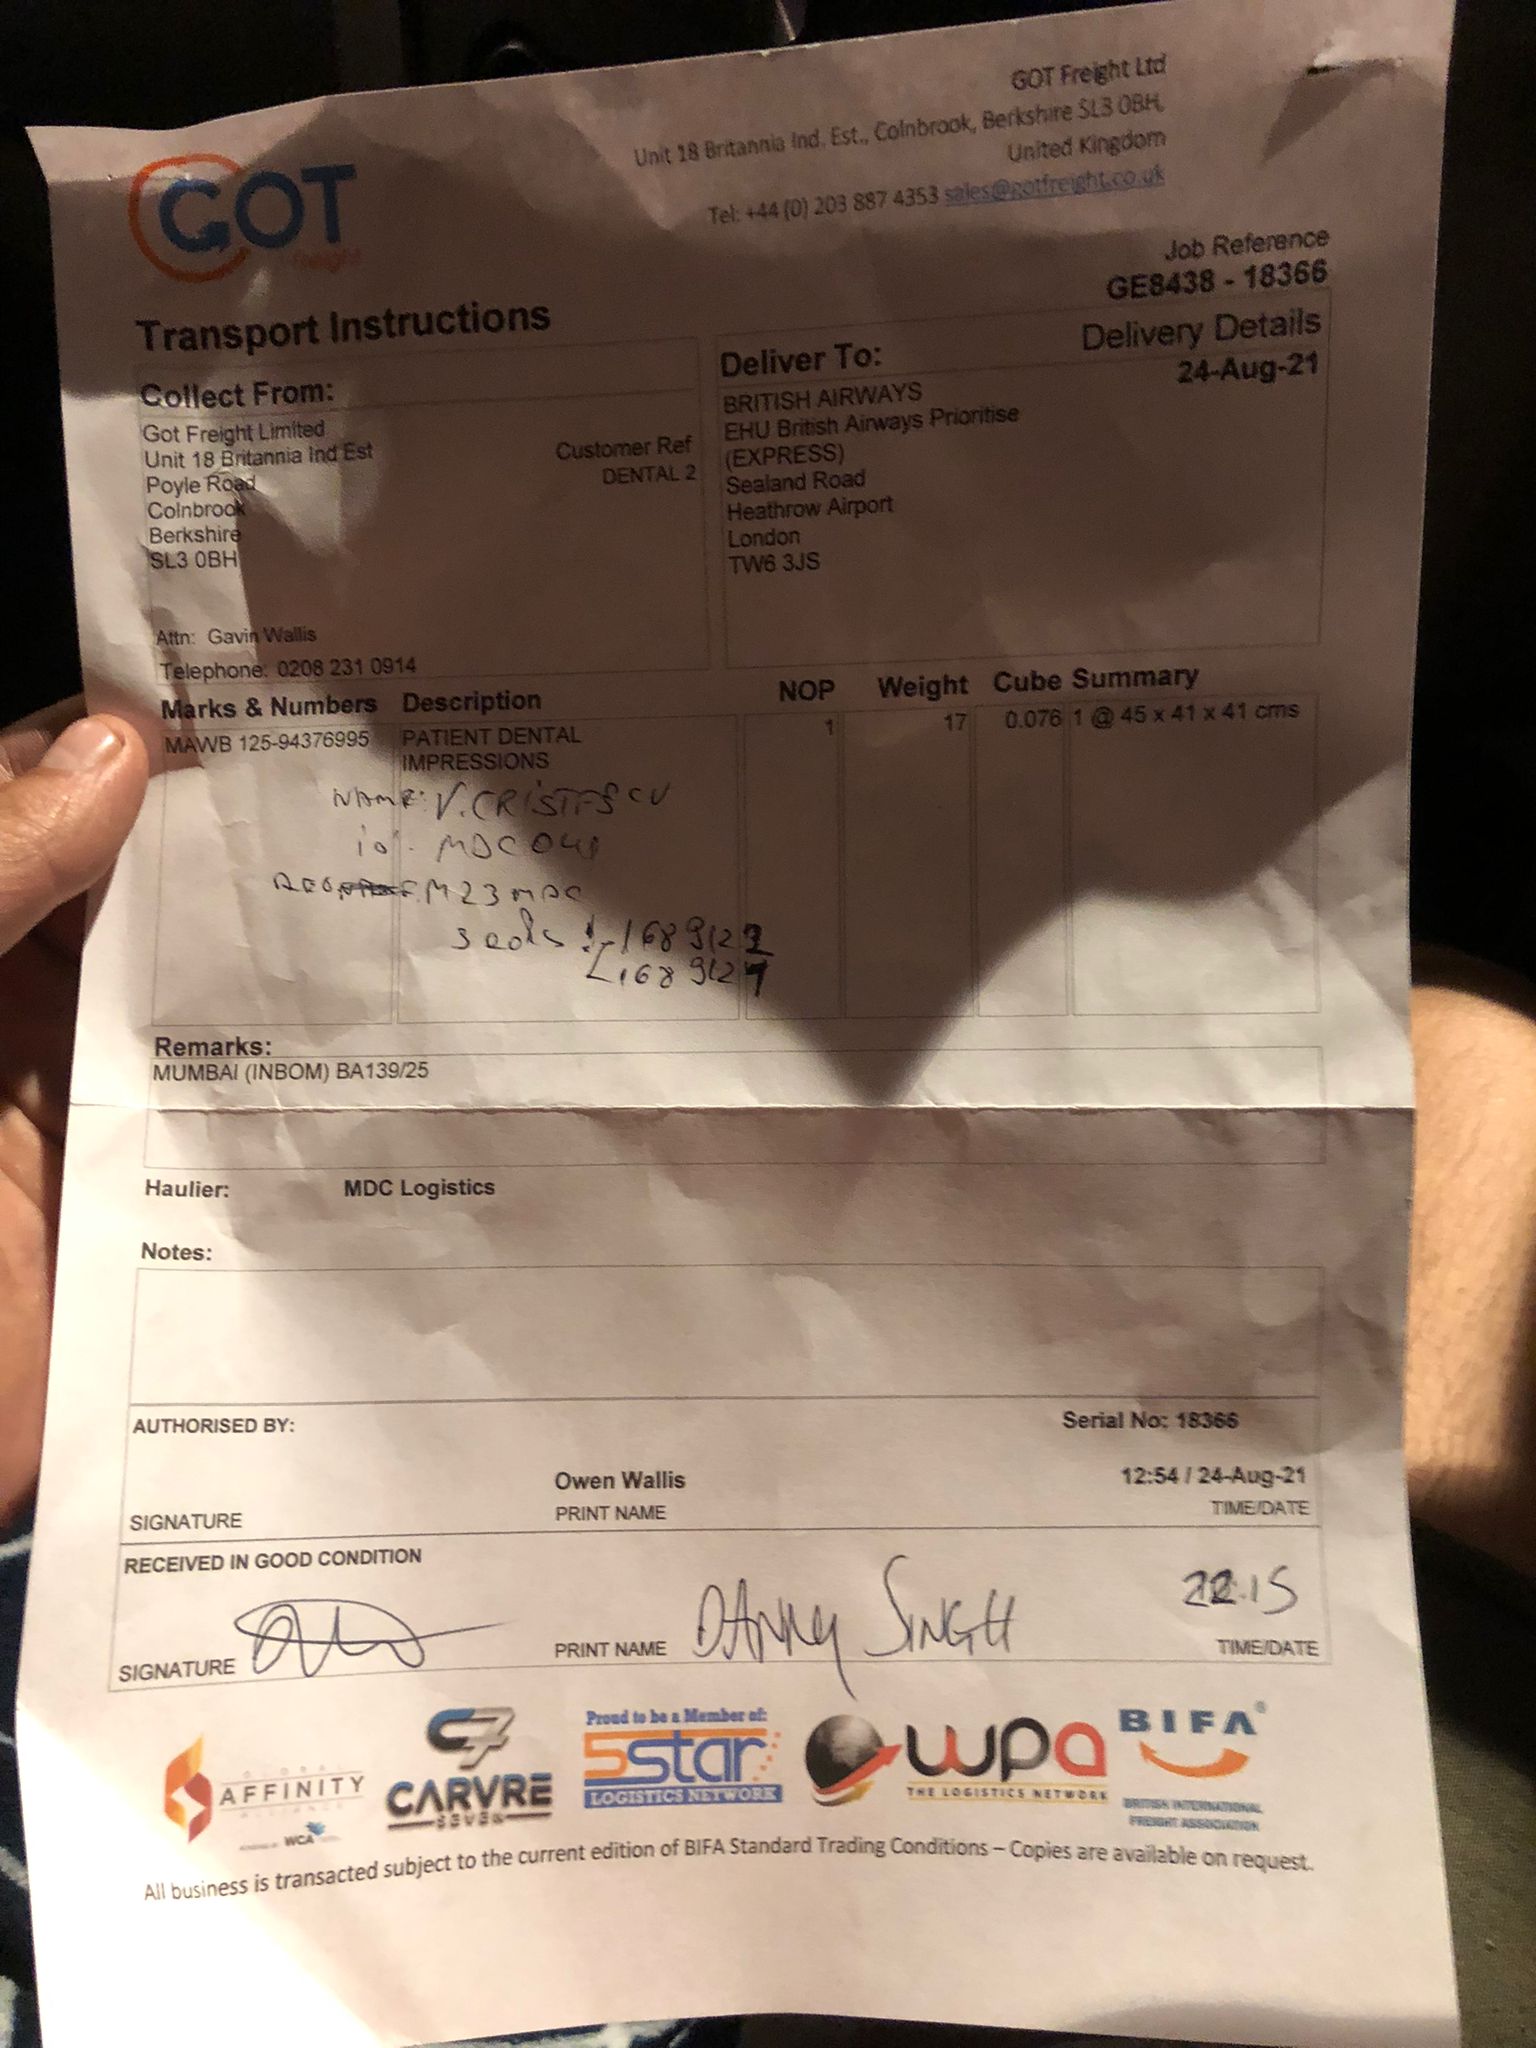 GOT
freight
GOT Freight Ltd
Unit 18 Britannia Ind. Est., Colnbrook, Berkshire SL3 0BH,
United Kingdom
Tel: +44 (0) 203 887 4353 sales@gotfreight.co.uk
Job Reference
GE8438 - 18366
Transport Instructions
Delivery Details
24-Aug-21
Collect From:
Got Freight Limited
Unit 18 Britannia Ind Est
Poyle Road
Colnbrook
Berkshire
SL3 0BH
Customer Ref
DENTAL 2
Attn: Gavin Wallis
Telephone: 0208 231 0914
Deliver To:
BRITISH AIRWAYS
EHU British Airways Prioritise
(EXPRESS)
Sealand Road
Heathrow Airport
London
TW6 3JS
Marks & Numbers Description NOP Weight Cube Summary
MAWB 125-94376995 PATIENT DENTAL 1 17 0.076 1 @ 45 x 41 x 41 cms
IMPRESSIONS
NAME: V. CRISTESCU
M23MDC
Seals: 
Remarks:
MUMBAI (INBOM) BA139/25
Haulier: MDC Logistics
Notes:
AUTHORISED BY: Serial No: 18366
Owen Wallis 12:54 / 24-Aug-21
SIGNATURE PRINT NAME TIME/DATE
RECEIVED IN GOOD CONDITION
SIGNATURE PRINT NAME DANNY SINGH 22.15 TIME/DATE
GLOBAL
AFFINITY
ALLIANCE
WCA
C7
CARVRE
SEVEN
Proud to be a Member of:
5star
LOGISTICS NETWORK
wpa
THE LOGISTICS NETWORK
BIFA®
BRITISH INTERNATIONAL
FREIGHT ASSOCIATION
All business is transacted subject to the current edition of BIFA Standard Trading Conditions – Copies are available on request.